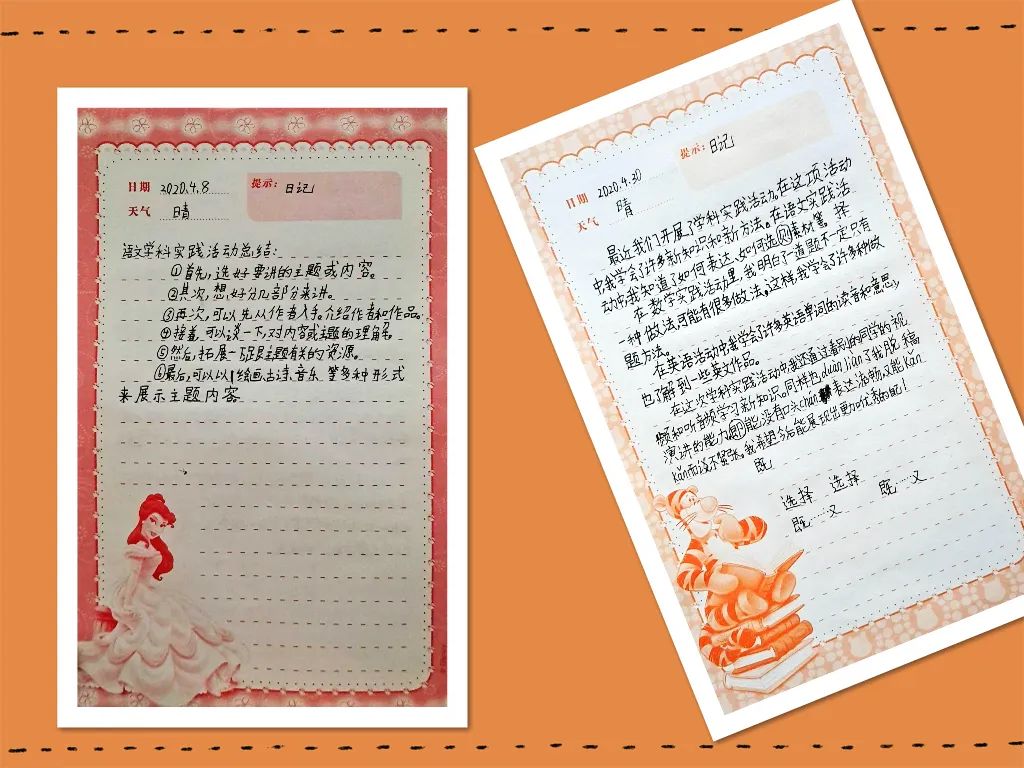 日期 2020.4.8 提示：日记
天气 晴
语文学科实践活动总结：
①首先，选好要讲的主题或内容。
②其次，想好分几部分来讲。
③再次，可以先从作者入手，介绍作者和作品。
④接着，可以谈一下，对内容或主题的理解。
⑤然后，拓展一下与主题有关的资源。
⑥最后，可以以绘画、古诗、音乐等多种形式
来展示主题内容
提示：日记
日期 2020.4.30
天气 晴
最近我们开展了学科实践活动，在这项活动
中我学会了许多新知识和新方法。在语文实践活
动中我知道了如何表达、如何选材等 择
在数学实践活动里，我明白了一道题不一定只有
一种做法，可能有很多做法，这样我学会了许多种做
题方法。
在英语活动中我学会了许多英语单词的读音和意思，
也了解到一些英文作品。
在这次学科实践活动中我还通过看别的同学的视
频和听音频学习新知识。同样也duàn liàn了我脱稿
演讲的能力，即能没有口头chan 表达流畅又能kǎn
kǎn而谈不紧张。我希望今后能展现出更加优秀的自己！
既
选择 选择 既……又
既……又